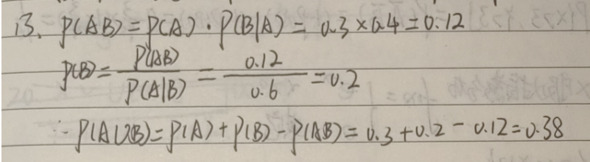 13. P(AB)=P(A)·P(B|A)=0.3×0.4=0.12
P(B)=P(AB)/P(A|B)=0.12/0.6=0.2
∴P(A∪B)=P(A)+P(B)-P(AB)=0.3+0.2-0.12=0.38